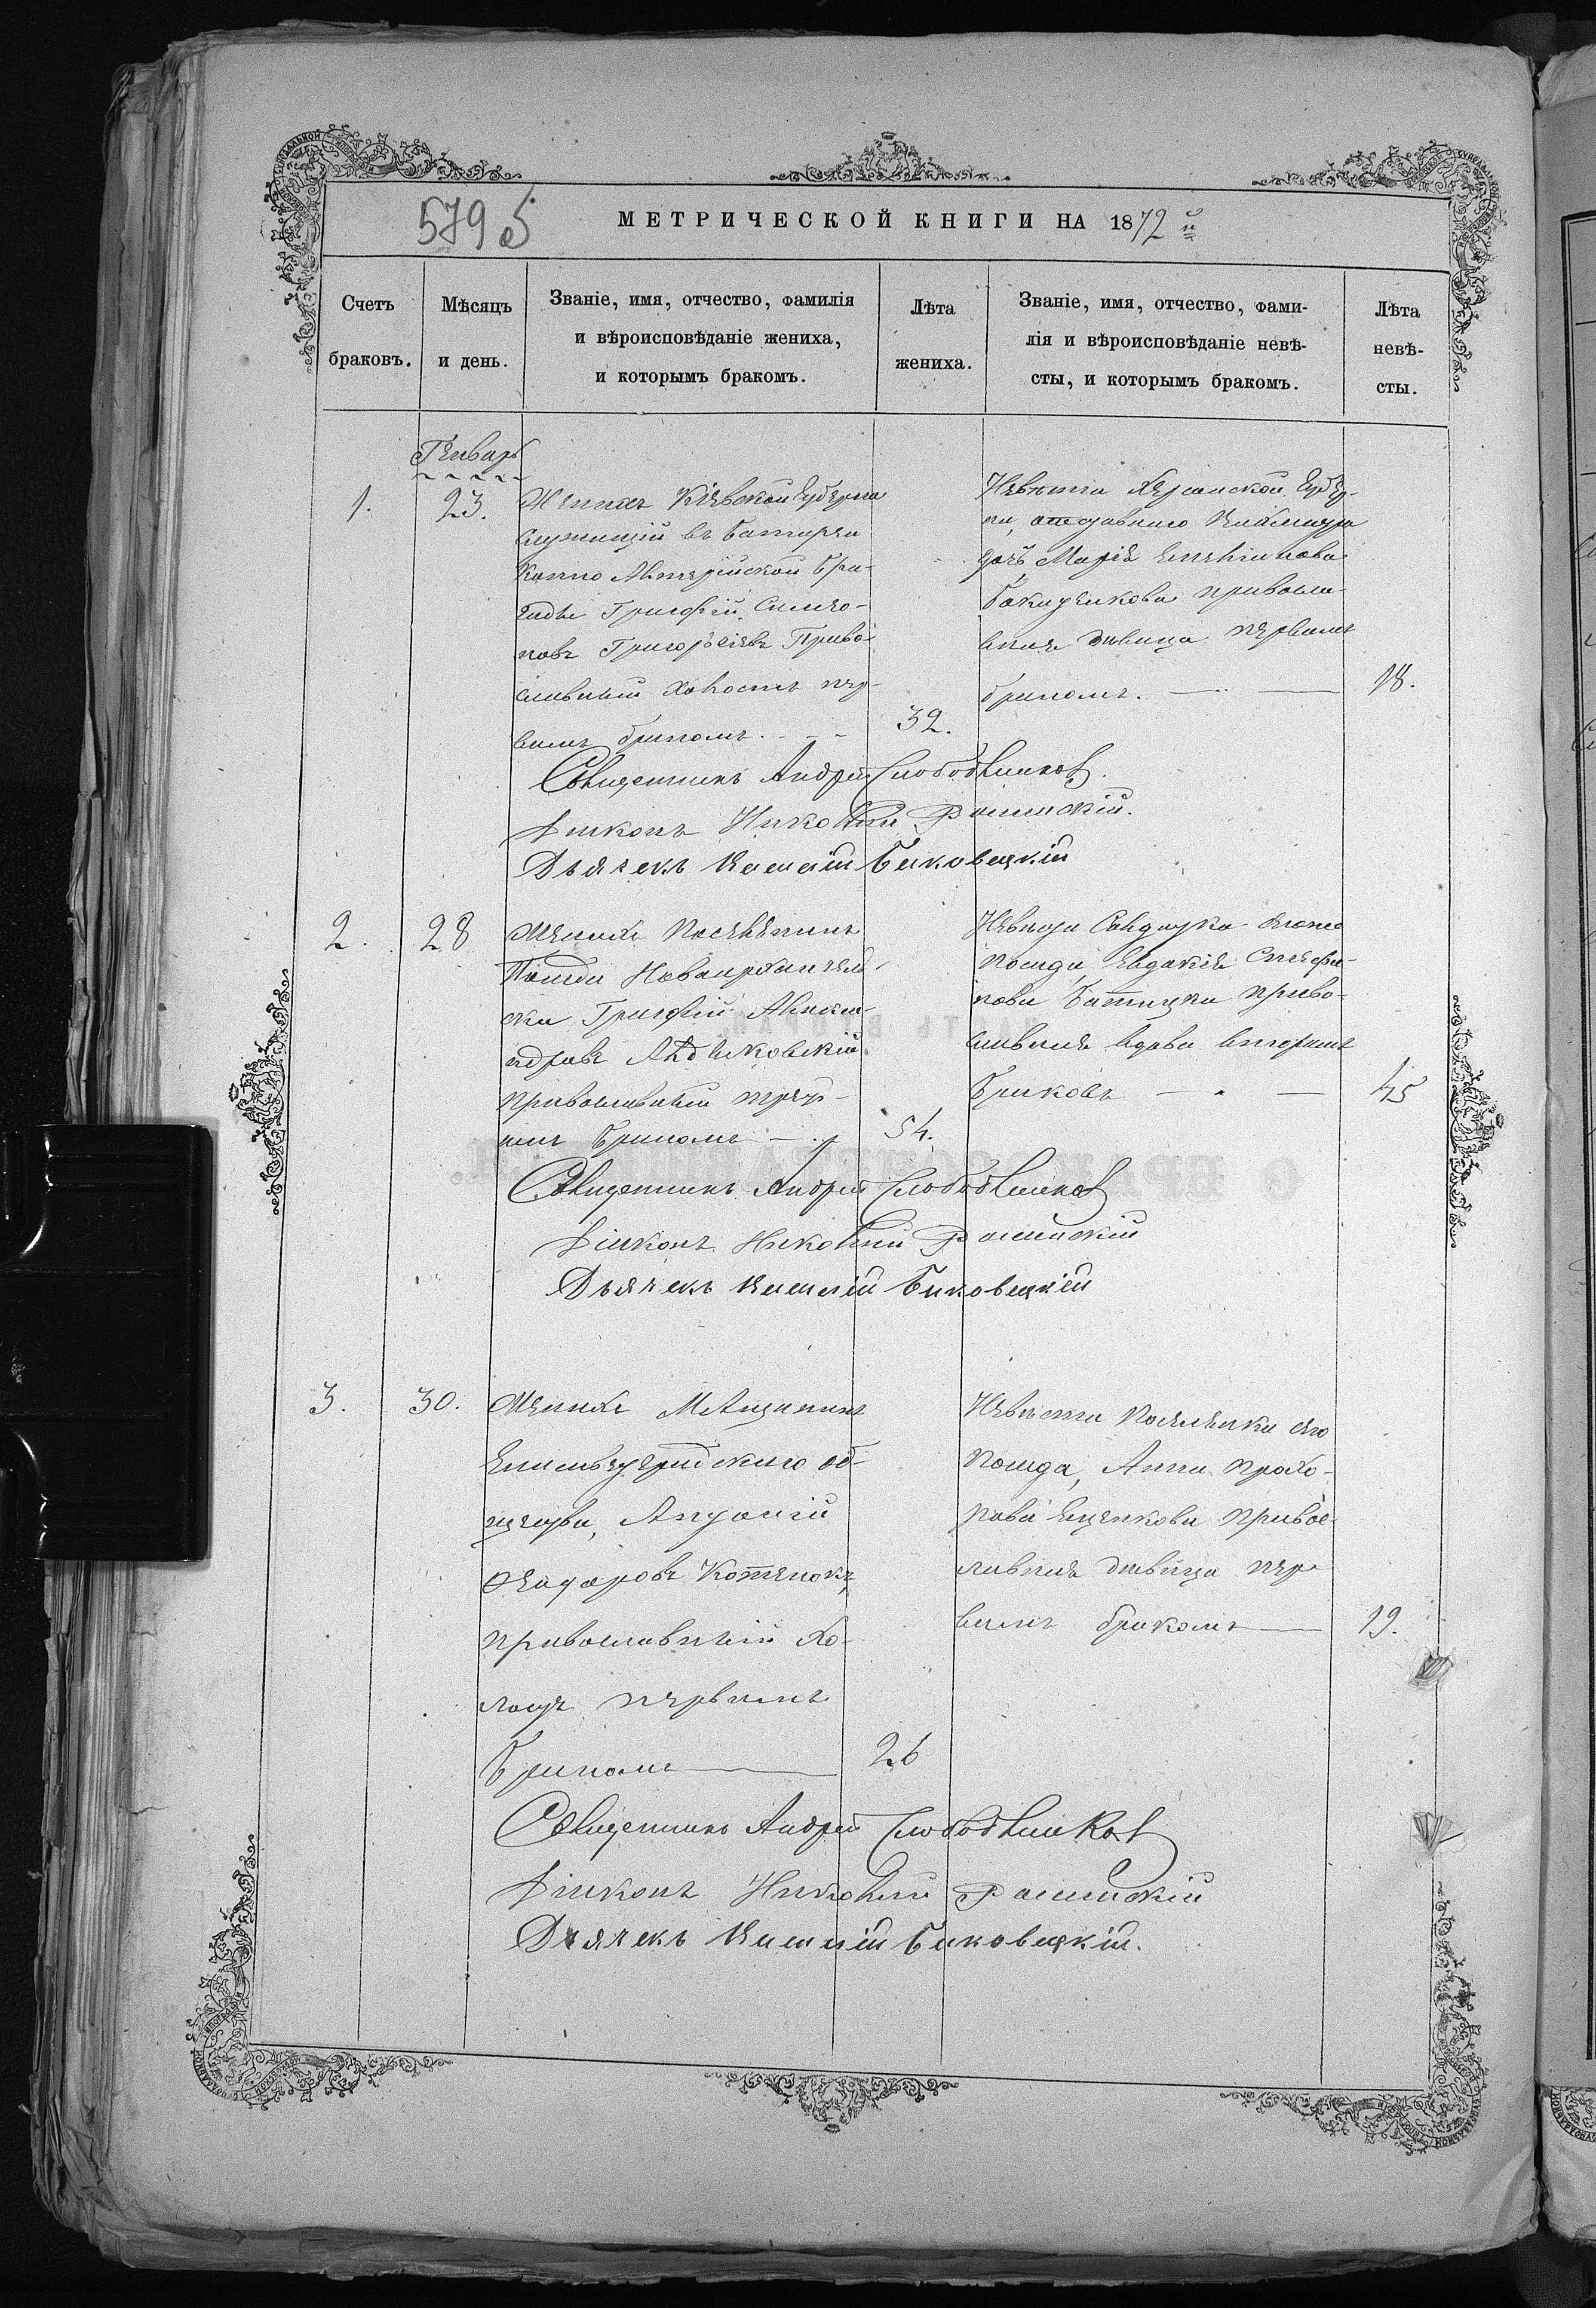 579 б
МЕТРИЧЕСКОЙ КНИГИ НА 1872 й
Счетъ браковъ.
Мѣсяцъ и день.
Званіе, имя, отчество, фамилія
и вѣроисповѣданіе жениха,
и которымъ бракомъ.
Лѣта жениха.
Званіе, имя, отчество, фами-
лія и вѣроисповѣданіе невѣ-
сты, и которымъ бракомъ.
Лѣта невѣ-
сты.
Генварь
1.
23.
Женихъ Кіевской Губерніи
служащій въ батареи
Конно Артерійской бри-
гады Григорій Симео-
новъ Григорьевъ Право-
славный холостъ пер-
вымъ бракомъ.
32.
Невѣста Херсонской Губер-
ніи, отставнаго
дочь Марія
православ-
ная дѣвица первымъ
бракомъ.
18.
Священникъ Андрей Слободяников
Діаконъ Николай
Дьячекъ Василій Биковецкій
2.
28
Женихъ Поселянинъ
Посада Новоархангель-
ска Григорій Алексан-
дровъ
Православный треть-
имъ бракомъ
54.
Невѣста Солдатка того же
Посада, Евдокія Стефа-
нова Право-
славная вдова вторымъ
бракомъ
45
Священникъ Андрей Слободяников
Діаконъ Николай
Дьячекъ Василій Биковецкій
3.
30.
Женихъ Мѣщанинъ
Елисаветградскаго об-
щества, Андроній
Феодоровъ Котенокъ,
православный хо-
лостъ первымъ
бракомъ
26
Невѣста Поселянка сего
Посада, Анна Прохо-
рова Еценкова Право-
лавная дѣвица пер
вымъ бракомъ
19.
Священникъ Андрей Слободяников
Діаконъ Николай
Дьячекъ Василій Биковецкій.